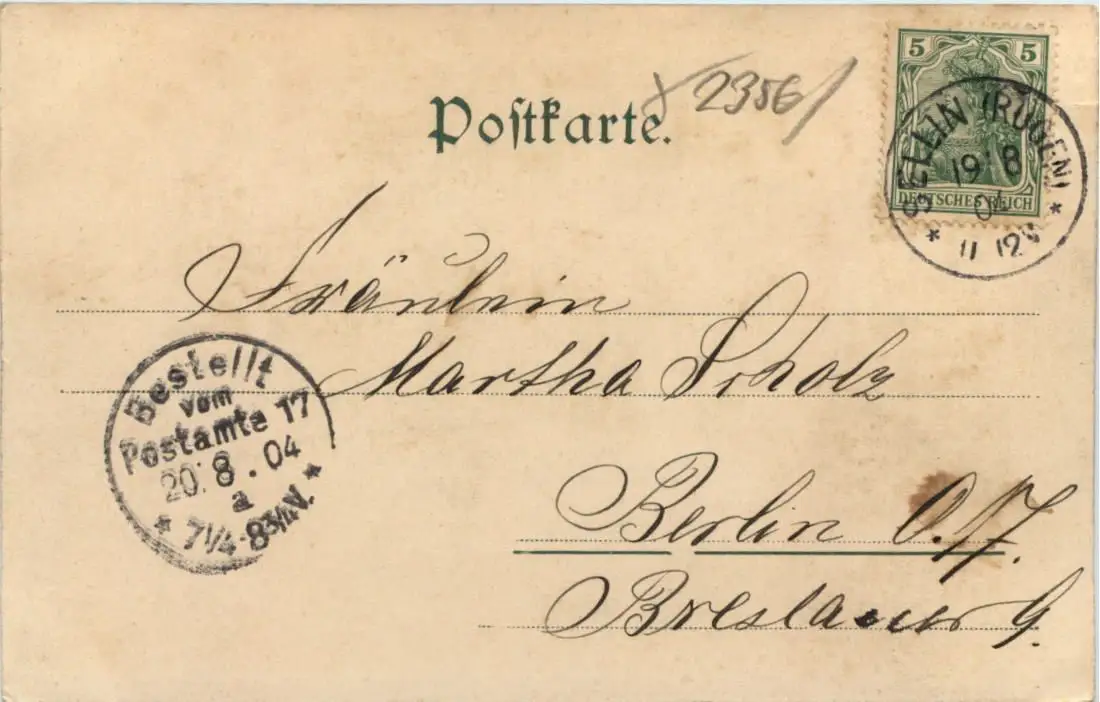 Postkarte.
2356
5 5
DEUTSCHES REICH
SELLIN (RÜGEN)
19 8
04
11 12V
Fräulein
Martha Scholz
Berlin O.
Breslauer
Bestellt
vom
Postamte 17
20.8.04
a
7¼-8¾V.